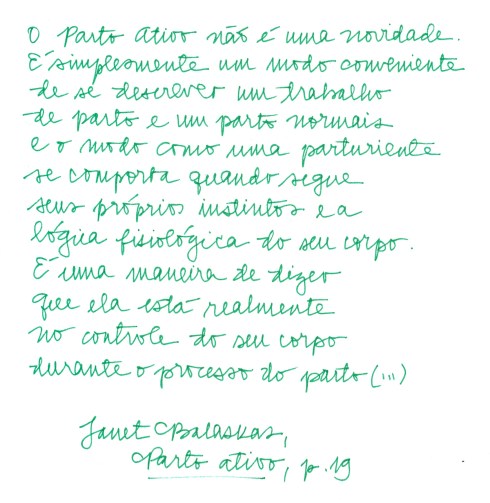 O Parto Ativo não é uma novidade.
É simplesmente um modo conveniente
de se descrever um trabalho
de parto e um parto normais
e o modo como uma parturiente
se comporta quando segue
seus próprios instintos e a
lógica fisiológica do seu corpo.
É uma maneira de dizer
que ela está realmente
no controle do seu corpo
durante o processo do parto (...)
Janet Balaskas,
Parto ativo, p. 19